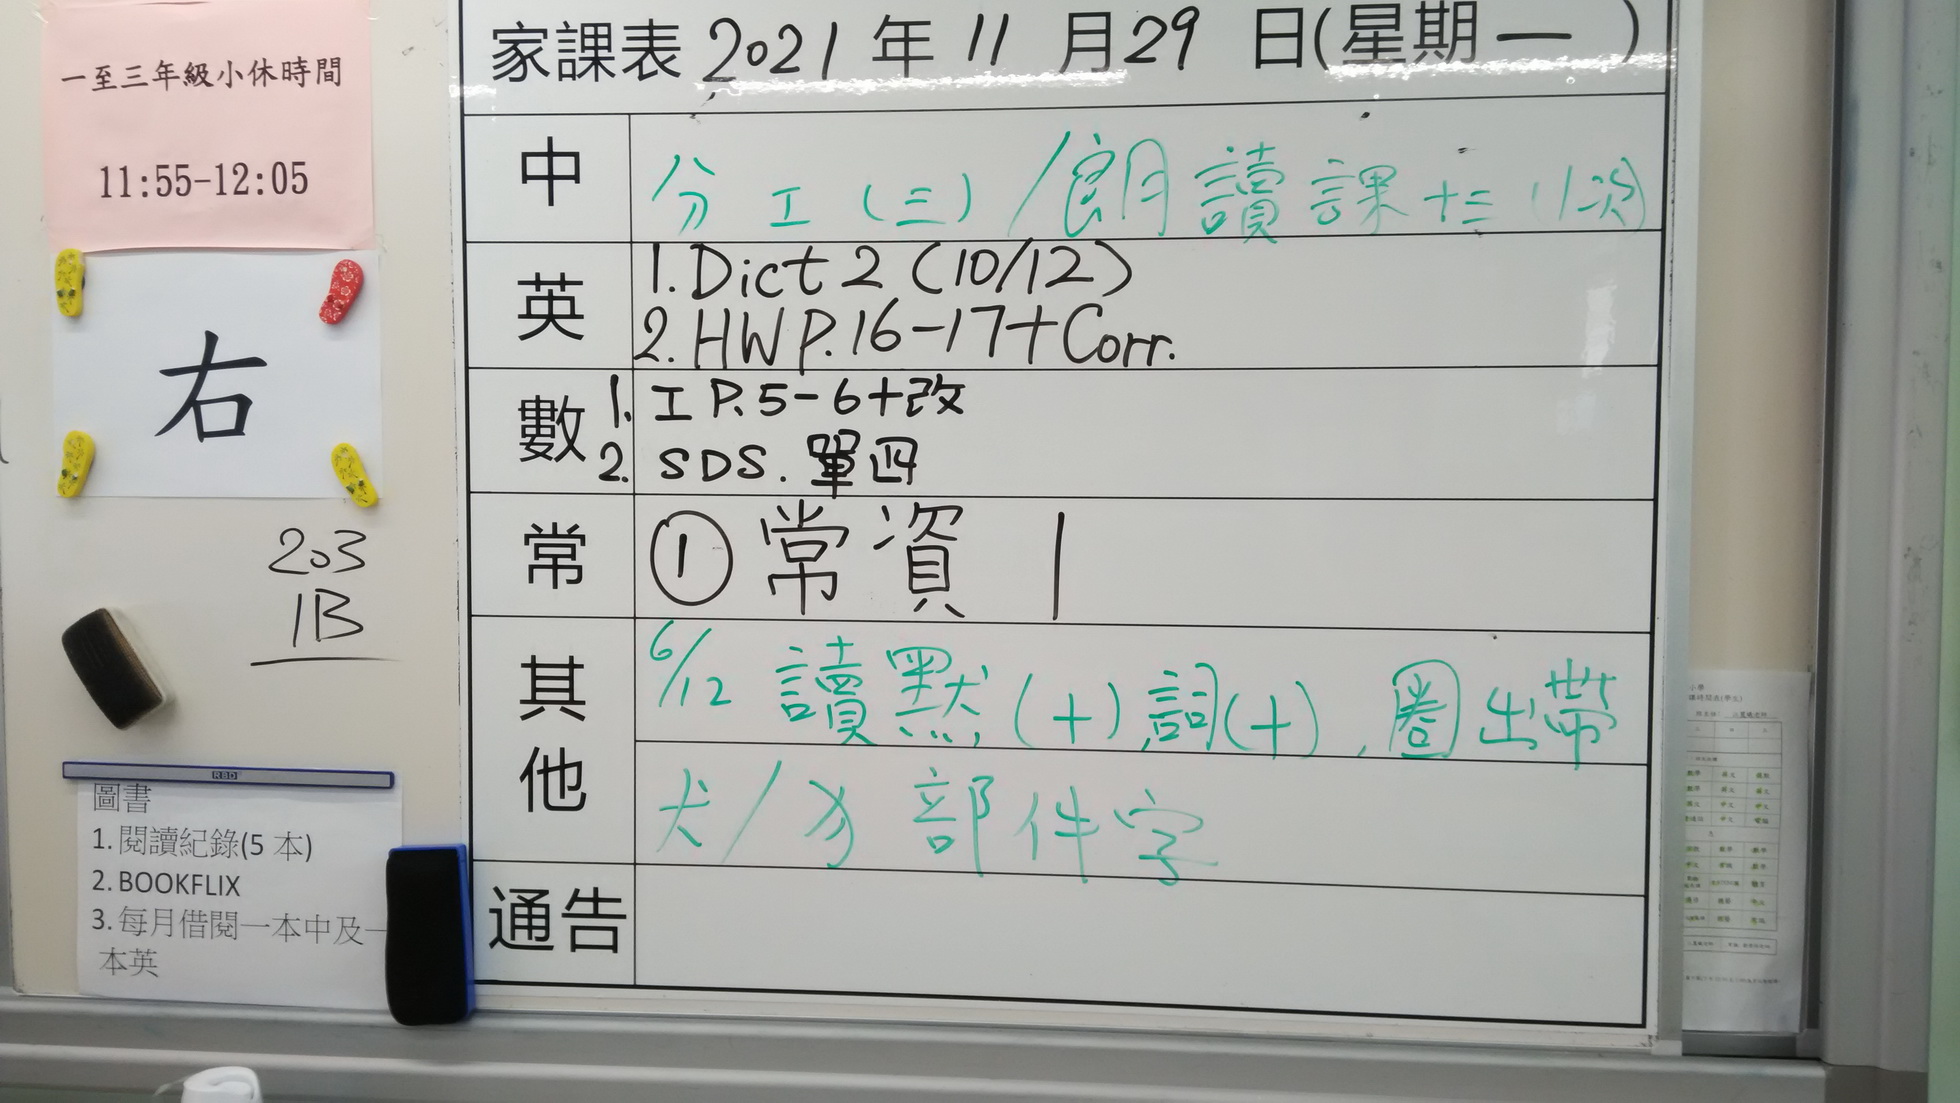 一至三年級小休時間
11:55-12:05
右
203
1B
RBD
圖書
1. 閱讀紀錄(5 本)
2. BOOKFLIX
3. 每月借閱一本中及一
本英
家課表 2021 年 11 月 29 日(星期一)
中
分工(三)/朗讀課十三(1次)
英
1. Dict 2 (10/12)
2. HW P.16-17+Corr.
數
1. 工 P.5-6+改
2. SDS. 單四
常
① 常資 1
其他
6/12 讀默(十),詞(十),圈出帶
犬/犭部件字
通告